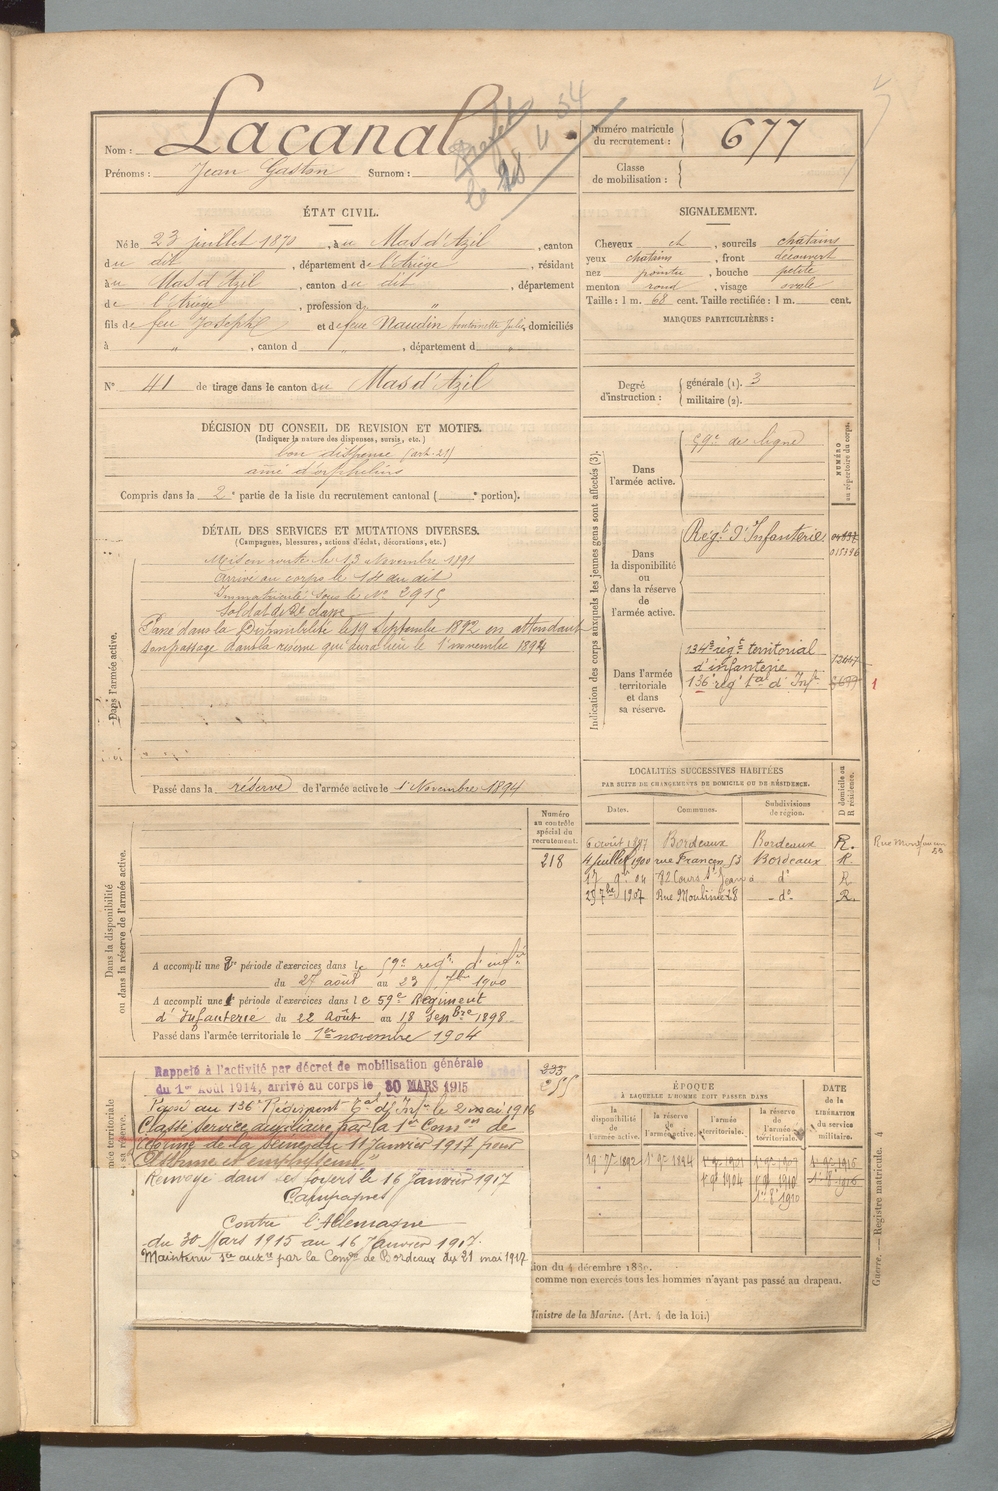 Nom : Lacanal
Prénoms : Jean Gaston Surnom :
Numéro matricule du recrutement : 677
Classe de mobilisation :
ÉTAT CIVIL.
Né le 23 juillet 1870, à u Mas d'Azil, canton
du dit, département de l'Ariège, résidant
à u Mas d'Azil, canton du dit, département
de l'Ariège, profession d "
fils de feu Joseph et de feue Naudin Antoinette Julie, domiciliés
à ", canton d ", département d "
N° 41 de tirage dans le canton du Mas d'Azil
DÉCISION DU CONSEIL DE REVISION ET MOTIFS.
(Indiquer la nature des dispenses, sursis, etc.)
bon dispensé (art. 21)
aîné d'orphelins
Compris dans la 2e partie de la liste du recrutement cantonal ( e portion).
SIGNALEMENT.
Cheveux ch, sourcils chatains
yeux chatains, front découvert
nez pointu, bouche petite
menton rond, visage ovale
Taille : 1 m. 68 cent. Taille rectifiée : 1 m. cent.
MARQUES PARTICULIÈRES :
Degré d'instruction : générale (1). 3
militaire (2).
Indication des corps auxquels les jeunes gens sont affectés (3).
NUMÉRO au répertoire du corps.
Dans l'armée active. 59e de ligne
Dans la disponibilité ou dans la réserve de l'armée active. Régt d'Infanterie
015396
Dans l'armée territoriale et dans sa réserve. 134e régt territorial
d'infanterie
136 régt tal d'Infie
1
DÉTAIL DES SERVICES ET MUTATIONS DIVERSES.
(Campagnes, blessures, actions d'éclat, décorations, etc.)
Dans l'armée active.
Mis en route le 13 Novembre 1891
Arrivé au corps le 14 du dit
Immatriculé sous le No 2915
Soldat de 2e classe
Passé dans la Disponibilité le 19 Septembre 1892 en attendant
son passage dans la réserve qui aura lieu le 1er novembre 1894
Passé dans la réserve de l'armée active le 1er Novembre 1894
Dans la disponibilité ou dans la réserve de l'armée active.
Numéro au contrôle spécial du recrutement.
218
A accompli une 2e période d'exercices dans le 59e régt d'infie
du 27 août au 23 7bre 1900
A accompli une 1e période d'exercices dans le 59e Régiment
d'Infanterie du 22 Août au 18 Sepbre 1898
Passé dans l'armée territoriale le 1er novembre 1904
LOCALITÉS SUCCESSIVES HABITÉES
PAR SUITE DE CHANGEMENTS DE DOMICILE OU DE RÉSIDENCE.
Dates. Communes. Subdivisions de région. D domicile ou R résidence.
6 août 1897 Bordeaux Bordeaux R.
4 juillet 1900 rue Françon 53 Bordeaux R.
82 Cours St Jean do R
25 7bre 1907 Rue Moulinié 28 - do R.
Rappelé à l'activité par décret de mobilisation générale
du 1er Août 1914, arrivé au corps le 30 MARS 1915
Passé au 136e Régiment Tal d'Infie le 2 mai 1916
Classé service auxiliaire par la 1re Comon de
réforme de la Seine du 11 Janvier 1917 pour
"Asthme et emphysème"
Renvoyé dans ses foyers le 16 Janvier 1917
Campagnes
Contre l'Allemagne
du 30 Mars 1915 au 16 Janvier 1917.
Maintenu sce auxre par la Comon de Bordeaux du 21 mai 1917
255
ÉPOQUE
À LAQUELLE L'HOMME DOIT PASSER DANS
la disponibilité de l'armée active. la réserve de l'armée active. l'armée territoriale. la réserve de l'armée territoriale.
DATE de la LIBÉRATION du service militaire.
19 7bre 1892 1er 9e 1894
1er 9e 1904
4 décembre 1889.
comme non exercés tous les hommes n'ayant pas passé au drapeau.
Ministre de la Marine. (Art. 4 de la loi.)
Guerre. — Registre matricule. 4